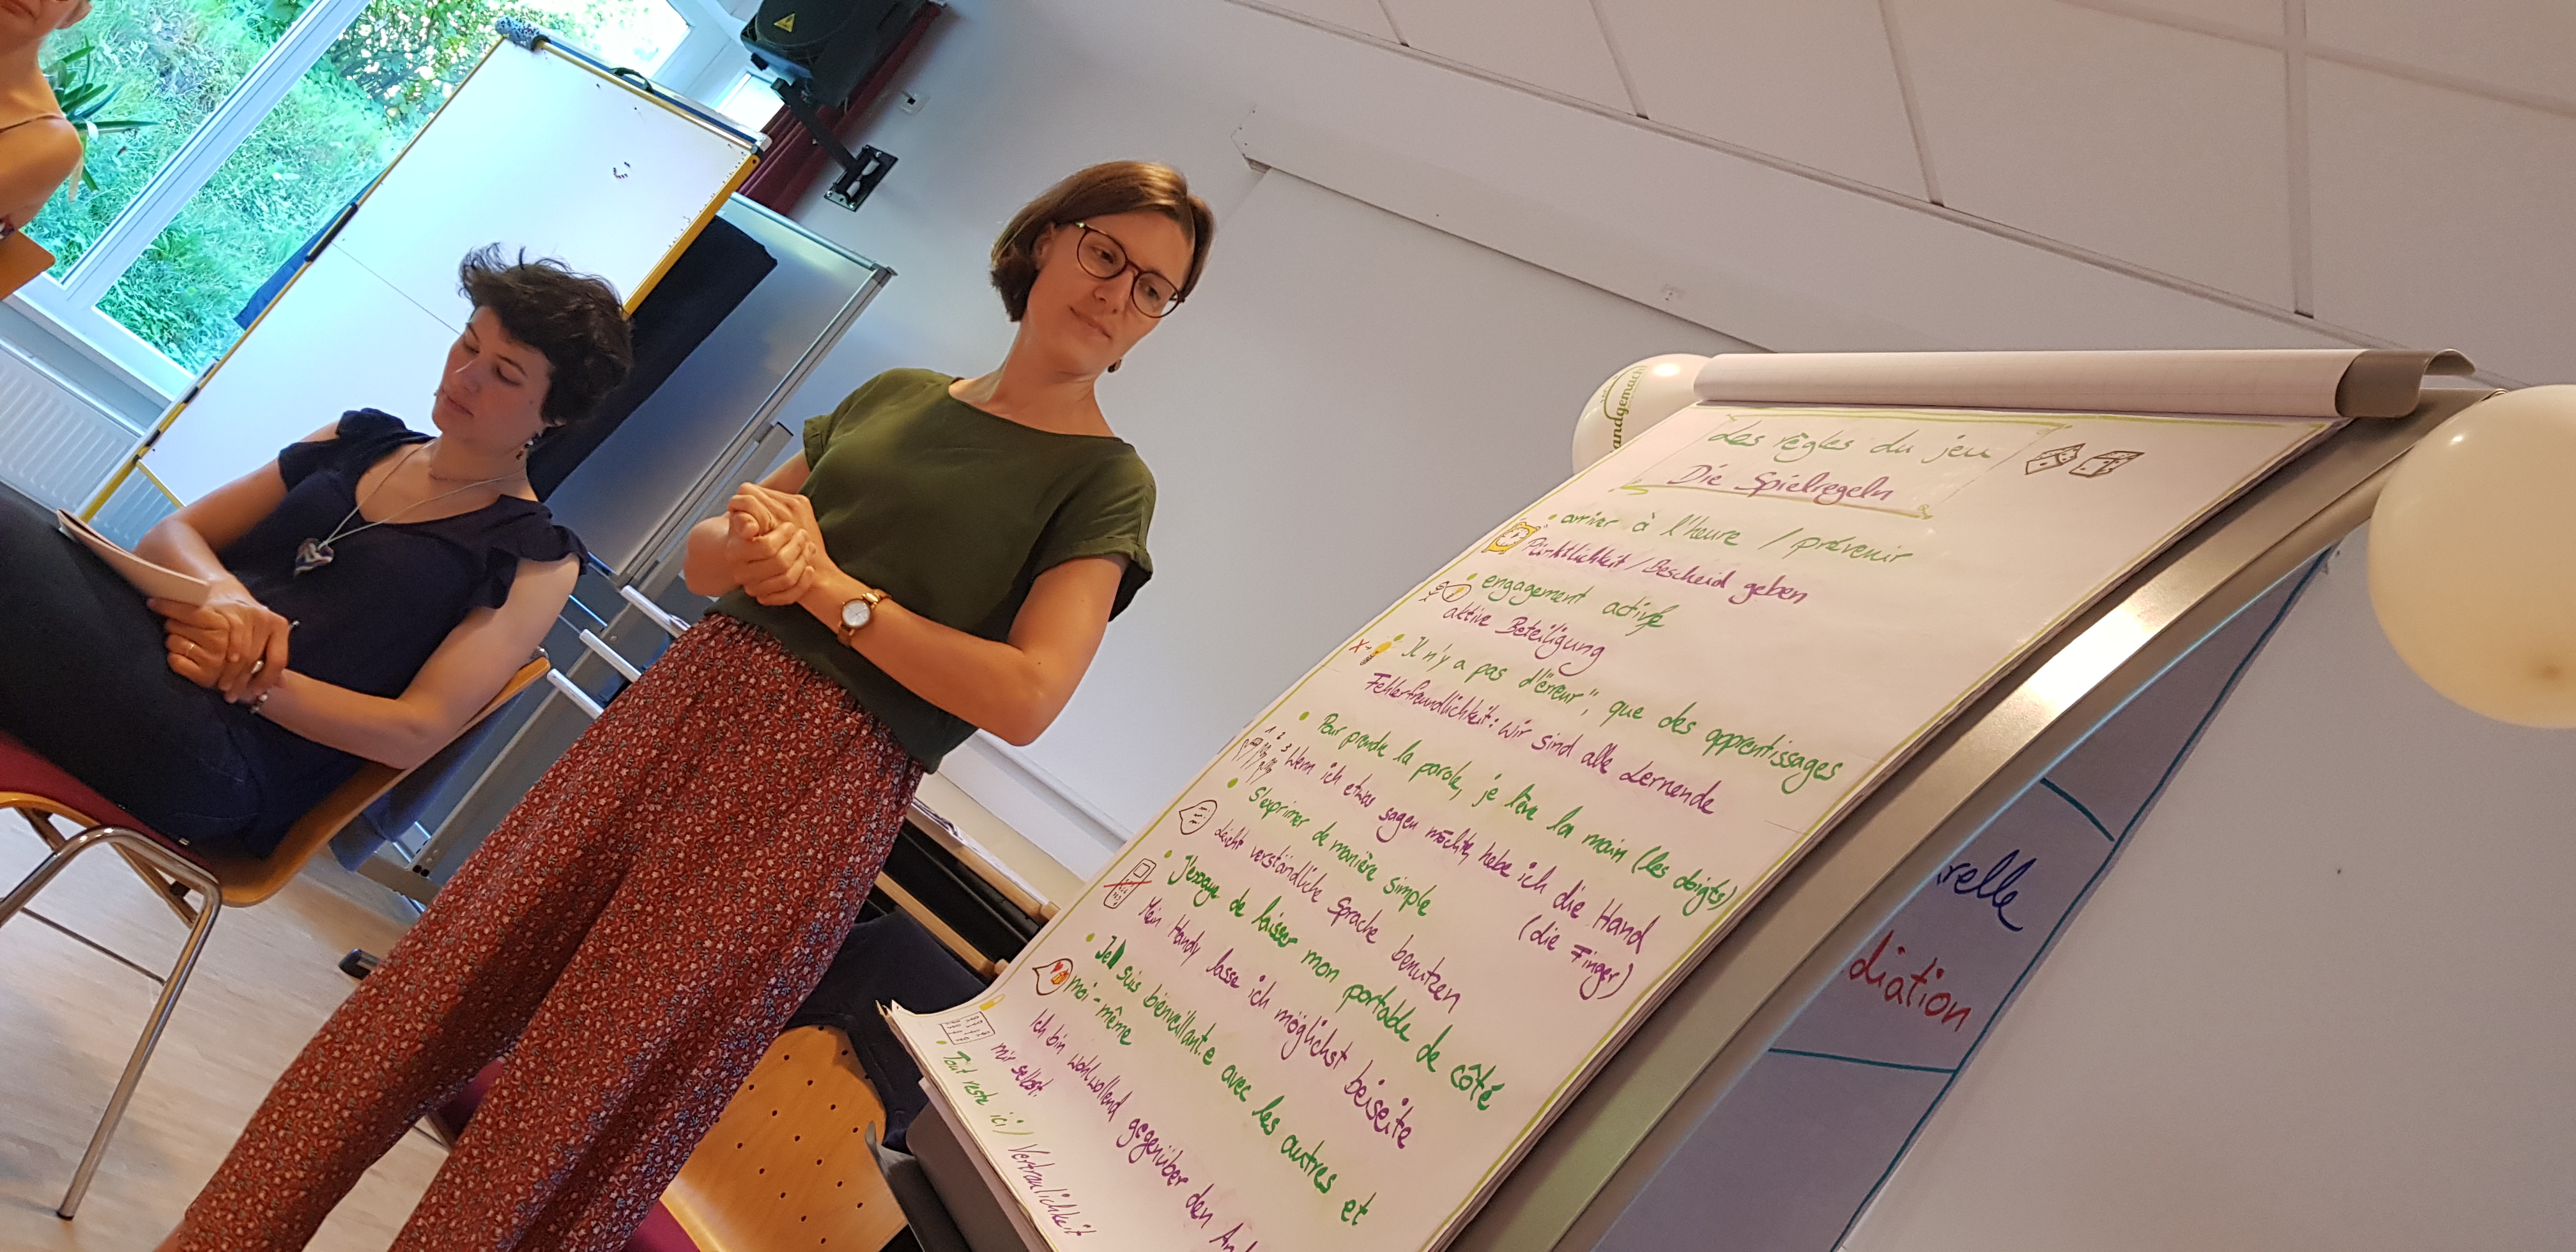 andgemacht
Les règles du jeu
Die Spielregeln
• arriver à l'heure / prévenir
Pünktlichkeit / Bescheid geben
• engagement active
aktive Beteiligung
• Il n'y a pas d'"erreur", que des apprentissages
Fehlerfreundlichkeit: wir sind alle Lernende
• Pour prendre la parole, je lève la main (les doigts)
1 2 3
Wenn ich etwas sagen möchte, hebe ich die Hand
(die Finger)
• S'exprimer de manière simple
Leicht verständliche Sprache benutzen
• J'essaye de laisser mon portable de côté
Mein Handy lasse ich möglichst beiseite
• Je suis bienveillant.e avec les autres et
moi-même
Ich bin wohlwollend gegenüber den And
mir selbst.
• Tout reste ici / Vertraulichkeit
relle
diation